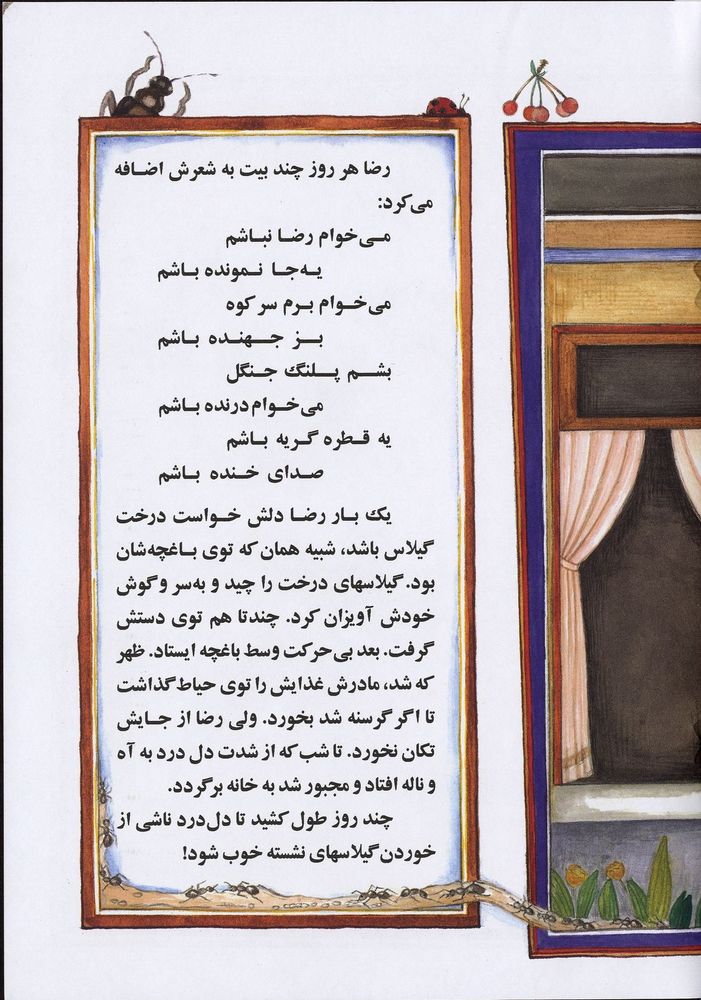 رضا هر روز چند بیت به شعرش اضافه
می‌کرد:
می‌خوام رضا نباشم
یه‌جا نمونده باشم
می‌خوام برم سر کوه
بز جهنده باشم
بشم پلنگ جنگل
می‌خوام درنده باشم
یه قطره گریه باشم
صدای خنده باشم
یک بار رضا دلش خواست درخت
گیلاس باشد، شبیه همان که توی باغچه‌شان
بود. گیلاسهای درخت را چید و به‌سر و گوش
خودش آویزان کرد. چندتا هم توی دستش
گرفت. بعد بی‌حرکت وسط باغچه ایستاد. ظهر
که شد، مادرش غذایش را توی حیاط گذاشت
تا اگر گرسنه شد بخورد. ولی رضا از جایش
تکان نخورد. تا شب که از شدت دل درد به آه
و ناله افتاد و مجبور شد به خانه برگردد.
چند روز طول کشید تا دل‌درد ناشی از
خوردن گیلاسهای نشسته خوب شود!